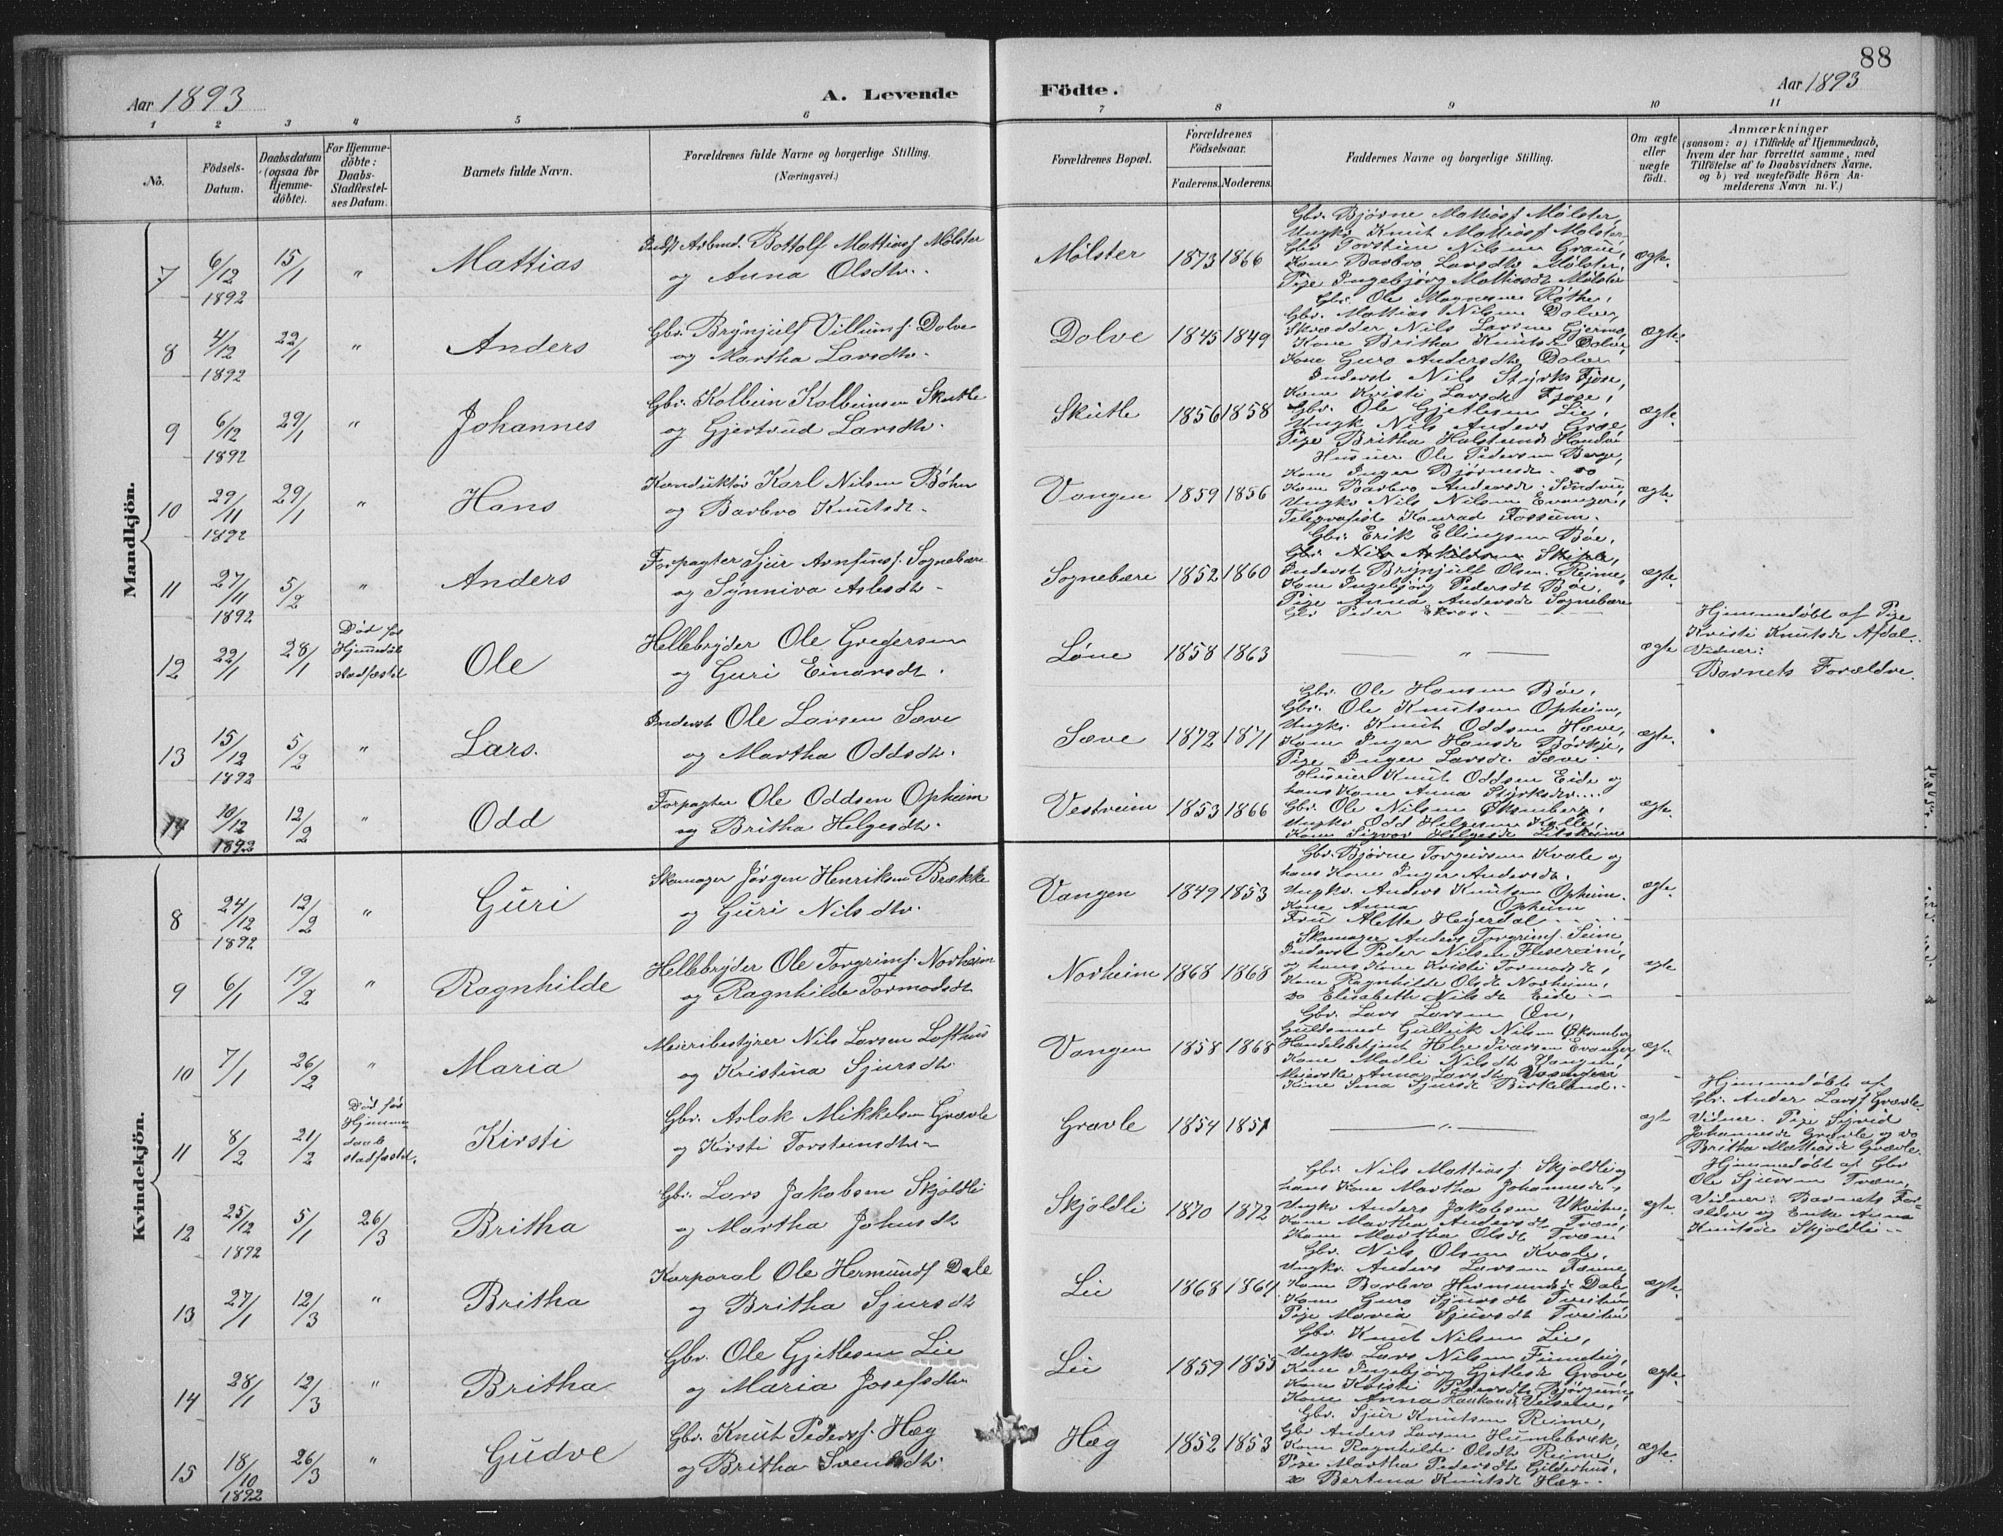 88
Aar 1893
A. Levende
Födte.
Aar 1893
1 2 3 4 5 6 7 8 9 10 11
No.
Födsels-
Datum.
Daabsdatum
(ogsaa for
Hjemme-
döbte).
For Hjemme-
döbte:
Daabs-
Stadfæstel-
ses Datum.
Barnets fulde Navn.
Forældrenes fulde Navne og borgerlige Stilling.
(Næringsvei.)
Forældrenes Bopæl.
Forældrenes
Födselsaar.
Faderens. Moderens.
Faddernes Navne og borgerlige Stilling.
Om ægte
eller
uægte
födt.
Anmærkninger
(saasom: a) i Tilfælde af Hjemmedaab,
hvem der har forrettet samme, med
Tilföielse af to Daabsvidners Navne.
og b) ved uægtefödte Börn An-
melderens Navn m. V.)
Mandkjön.
7 6/12 1892 15/1 " Mattias
Bottolf Mattiasf Mølster
og Anna Olsdtr.
Mølster 1873 1866
Gbr. Bjørne Mattiasf Mølster,
Ungk. Knut Mattiasf Mølster
Gbr Torstein Nilsen
Kone Barbro Larsdtr Mølster,
Pige Ingebjørg Mattiasdt Mølster
ægte.
8 4/12 1892 22/1 " Anders
Gbr. Brynjulf Villumf. Dolve
og Martha Larsdtr.
Dolve 1845 1849
Gbr. Ole Magnesen Røthe,
Gbr. Mattias Nilsen Dolve,
Skrædder Nils Larsen
Kone Britha Knutsdt Dolve,
Kone Guro Andersdtr Dolve
ægte.
9 6/12 1892 29/1 " Johannes
Gbr. Kolbein Kolbeinsen Skutle
og Gjertrud Larsdtr.
Skutle 1856 1858
Inderst Nils Styrks Fjose,
Kone Kristi Larsdt Fjose,
Gbr. Ole Gjetlesen Lie,
Ungk Nils Anders
Pige Britha
ægte.
10 29/11 1892 29/1 " Hans
Konduktør Karl Nilsen Bøhn
og Barbro Knutsdt.
Vangen 1859 1856
Husmer Ole Pedersen Berge,
Kone Inger Bjørnsdt. do
Kone Barbro Andersdt.
Ungk. Nils Nilsen Evanger,
Telegrafist Konrad Fossum.
ægte.
11 27/11 1892 5/2 " Anders
Forpagter Sjur Arnfinsf. Sognebære
og Synniva Aslesdtr
Sognebære 1852 1860
Gbr. Erik Ellingsen Bøe,
Gbr. Nils Askildsen Skiple,
Inderst Brynjulf Olsen Reime,
Kone Ingebjørg Pedersdt Bøe,
Pige Anna Andersdt Sognebære
Gbr Peder
ægte.
12 22/1 28/1 Død før
Hjemmedåb
stadfæstet Ole
Hellebryder Ole Gregersen
og Guri Einarsdt.
Løne 1858 1863 — " — ægte
Hjemmedøbt af Pige
Kristi Knutsdt Afdal.
Vidner:
Barnets Forældre.
13 15/12 1892 5/2 " Lars.
Inderst Ole Larsen Sæve
og Martha Oddsdtr.
Sæve 1872 1871
Gbr. Ole Hansen Bøe,
Gbr. Ole Knutsen Opheim,
Ungk. Knut Oddsen Hæve,
Kone Inger Hansdt Børkje,
Pige Inger Larsdt. Sæve.
ægte.
14 10/12 1892 12/2 " Odd
Forpagter Ole Oddsen Opheim
og Britha Helgesdtr.
Vestreim 1853 1866
Husmer Knut Oddsen Eide og
hans Kone Anna Styrksdtr.
Gbr. Ole Nilsen Øksenberg,
Ungk. Odd Helgesen
Kone Sigvor Helgesdt
ægte.
Kvindekjön.
8 24/12 1892 12/2 " Guri
Skomager Jørgen Henriksen Brække
og Guri Nilsdtr.
Vangen 1849 1853
Gbr. Bjørne Torgeirsen Kvale og
hans Kone Inger Andersdt.
Ungk. Anders Knutsen Opheim.
Kone Anna Opheim
Fru Alette Heyerdal
ægte.
9 6/1 19/2 " Ragnhilde
Hellebryder Ole Torgrimsf. Norheim
og Ragnhilde Tormodsdt
Norheim 1868 1868
Skomager Anders Torgrimsf. Seim,
Inderst Peder Nilsen
og hans Kone Kristi Tormodsdt,
Kone Ragnhilde Olsdt Norheim,
do Elisabeth Nilsdt Eide.
ægte
10 7/1 26/2 " Maria
Meieribestyrer Nils Larsen Lofthus
og Kristina Sjursdt.
Vangen 1858 1868
Gbr. Lars Larsen Øn,
Guldsmed Gulleik Nilsen Øksenberg
Handelsbetjent Helge Ivarsen Evanger,
Kone Madli Nilsdt Vangen,
Meierske Anna Larsdt Vangen
Kone Sina Sjursdt Birkeland.
ægte
11 8/2 21/2 Død før
Hjemme
daabs
stadfæstet. Kirsti
Gbr. Aslak Mikkelsen Grævle
og Kirsti Torsteinsdtr.
Gravle 1854 1851 — " — ægt
Hjemmedøbt af
Gbr. Ander Larsf Grævle.
Vidner: Pige Sigrid
Johannesdt Grævle og do
Britha Mattiasdt Grævle.
12 25/12 1892 5/1 26/3 Britha
Gbr. Lars Jakobsen Skjoldli
og Martha Johnsdt
Skjoldli 1870 1872
Gbr. Nils Mattiasf Skjoldli og
hans Kone Martha Johannesdt,
Ungk. Anders Jakobsen
Kone Martha Andersdt
Kone Martha Olsdt
ægte.
Hjemmedøbt af Gbr
Ole Sjursen
Vidner: Barnets For-
ældre og Enke Anna
Knutsdt Skjoldli.
13 27/1 12/3 " Britha
Korporal Ole Hermundsf Dale
og Britha Sjursdt
Lie 1868 1864
Gbr. Nils Olsen Kvale,
Ungk. Anders Larsen
Kone Barbro Hermundsdt Dale
Kone Guro Sjursdt
Pige Maria Sjursdt
ægte.
14 28/1 12/3 " Britha
Gbr. Ole Gjetlesen Lie
og Maria Josefsdtr
Lie 1859 1855
Gbr Knut Nilsen Lie,
Ungk. Lars Nilsen
Kone Ingebjørg Gjetlesdt
Kone Kristi Pedersdt
Kone Anna
ægte.
15 18/10 1892 26/3 " Gudve
Gbr. Knut Pedersf. Hæg
og Britha Svensdtr.
Hæg 1852 1853
Gbr. Sjur Knutsen Reime,
Gbr Anders Larsen Humlebræk,
Kone Ragnhilde Olsdt Reime,
Pige Martha Pedersdt Gilderhus,
do Bertina Knutsdt Hæg.
ægte.